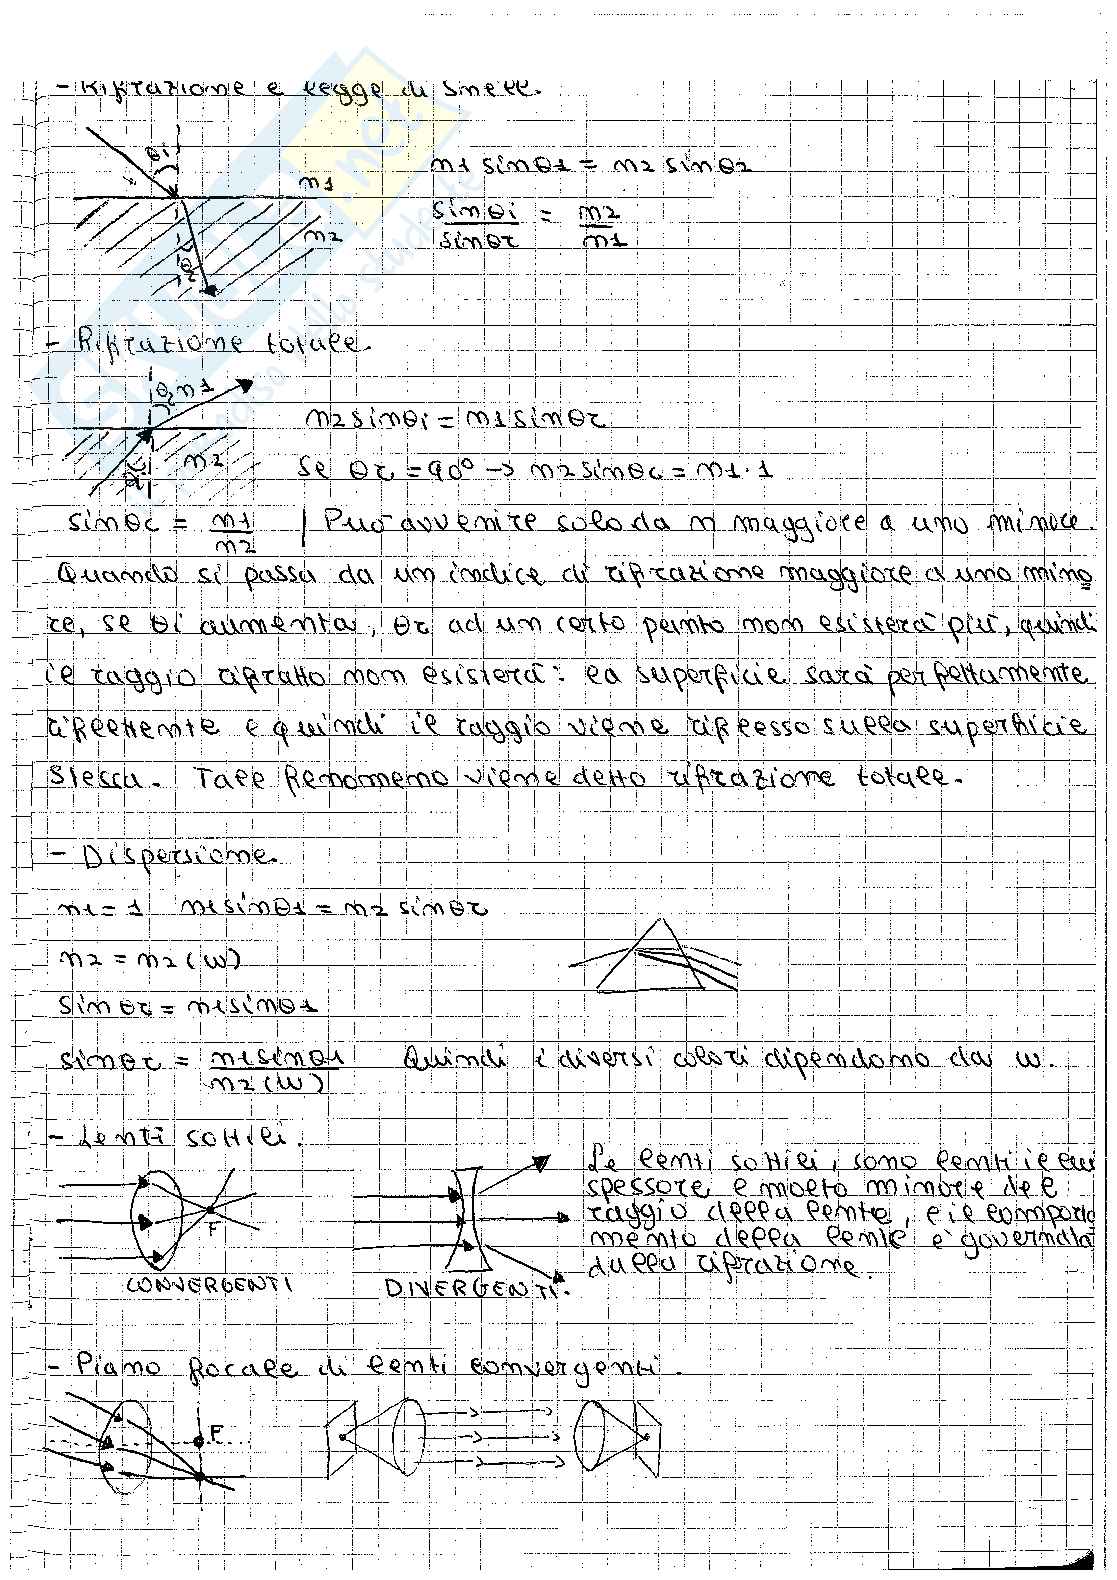 - Rifrazione e legge di Snell.
θi
n1
n2
θr
n1 sinθ1 = n2 sinθ2
sinθi = n2
sinθr n1
- Rifrazione totale.
θr n1
n2
θi
n2 sinθi = n1 sinθr
Se θr = 90° → n2 sinθc = n1 · 1
sinθc = n1 / Può avvenire solo da n maggiore a uno minore.
n2
Quando si passa da un indice di rifrazione maggiore a uno mino
re, se θi aumenta, θr ad un certo punto non esisterà più, quindi
il raggio rifratto non esisterà: la superficie sarà perfettamente
riflettente e quindi il raggio viene riflesso sulla superficie
stessa. Tale fenomeno viene detto rifrazione totale.
- Dispersione.
n1 = 1 n1 sinθ1 = n2 sinθr
n2 = n2 (w)
sinθr = n1 sinθ1
sinθr = n1 sinθ1 Quindi i diversi colori dipendono da w.
n2 (w)
- Lenti sottili.
F
CONVERGENTI
DIVERGENTI.
Le lenti sottili, sono lenti il cui
spessore è molto minore del
raggio della lente, e il comporta
mento della lente è governata
dalla rifrazione.
- Piano focale di lenti convergenti.
F